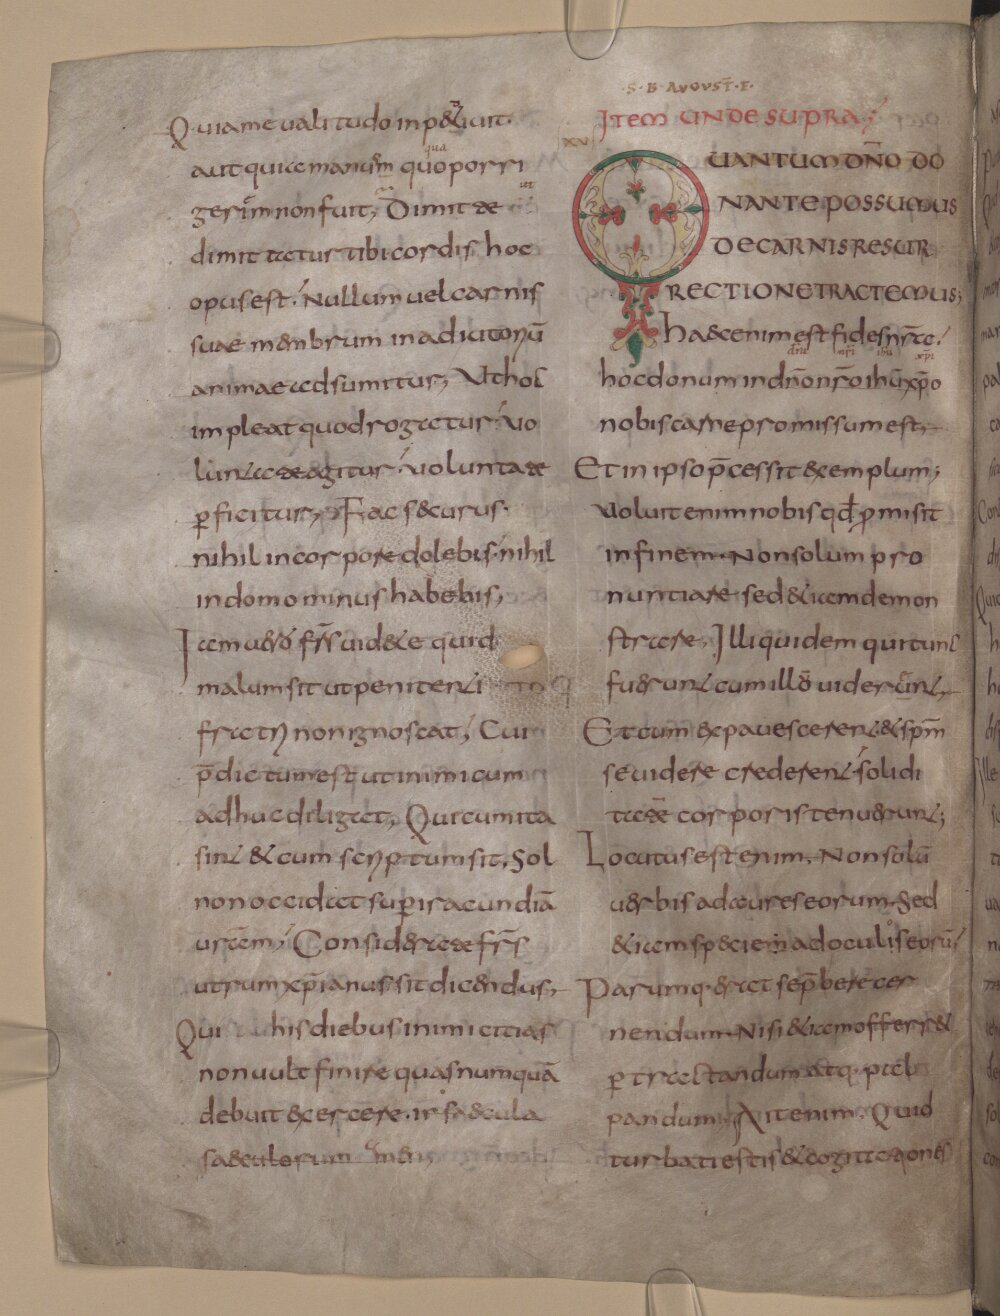 Quia me ualitudo inpediuit.
aut qui ea manum quo porri
gerem non fuit; Dimitte
dimittetur tibi cordis hoc
opus est. Nullum uel carnis
suae membrum in adiutoriū
animae adsumitur; Ut hoc
impleat quod rogatur uo
luntate agitur. uoluntate
ꝑficitur; Fac securus.
nihil in corpore dolebis. nihil
in domo minus habebis;
Iam uero fr̄s uidete quid
malum sit ut penitenti
fratri non ignoscat; Cui
p̄dictum est ut inimicum
adhuc diligat; Qui cum ita
sint & cum scriptum sit, Sol
non occidat super iracundiā
uram; Considerate fr̄s
utrum xp̄ianus sit dicendus;
Qui his diebus inimicitias
non uult finire quas numquā
debuit exercere. in saecula
saeculorum amen;
·S·B·AUGUST̄·E·
Item unde supra;
XV
QUANTUM DN̄O DO
NANTE POSSUMUS
DE CARNIS RESUR
RECTIONE TRACTEMUS;
Haec enim est fides nr̄a.
hoc donum in dn̄o nr̄o ihū xp̄o
nobis carne promissum est;
Et in ipso p̄cessit exemplum;
Uoluit enim nobis qd ꝓmisit
in finem. Non solum pro
nuntiare sed etiam demon
strare. Illi quidem qui tunc
fuerunt cum illō uiderunt;
Et cum expauescerent & sp̄m
se uidere crederent. solidi
tatē corporis tenuerunt;
Locutus est enim, Non solū
uerbis ad aures eorum. Sed
etiam specie ad oculos eorū
Parumq. erat se p̄bere cer
nendum. Nisi etiam offerret
ꝑtractandum atq. pal
pandum; Ait enim. Quid
turbati estis & cogitationes